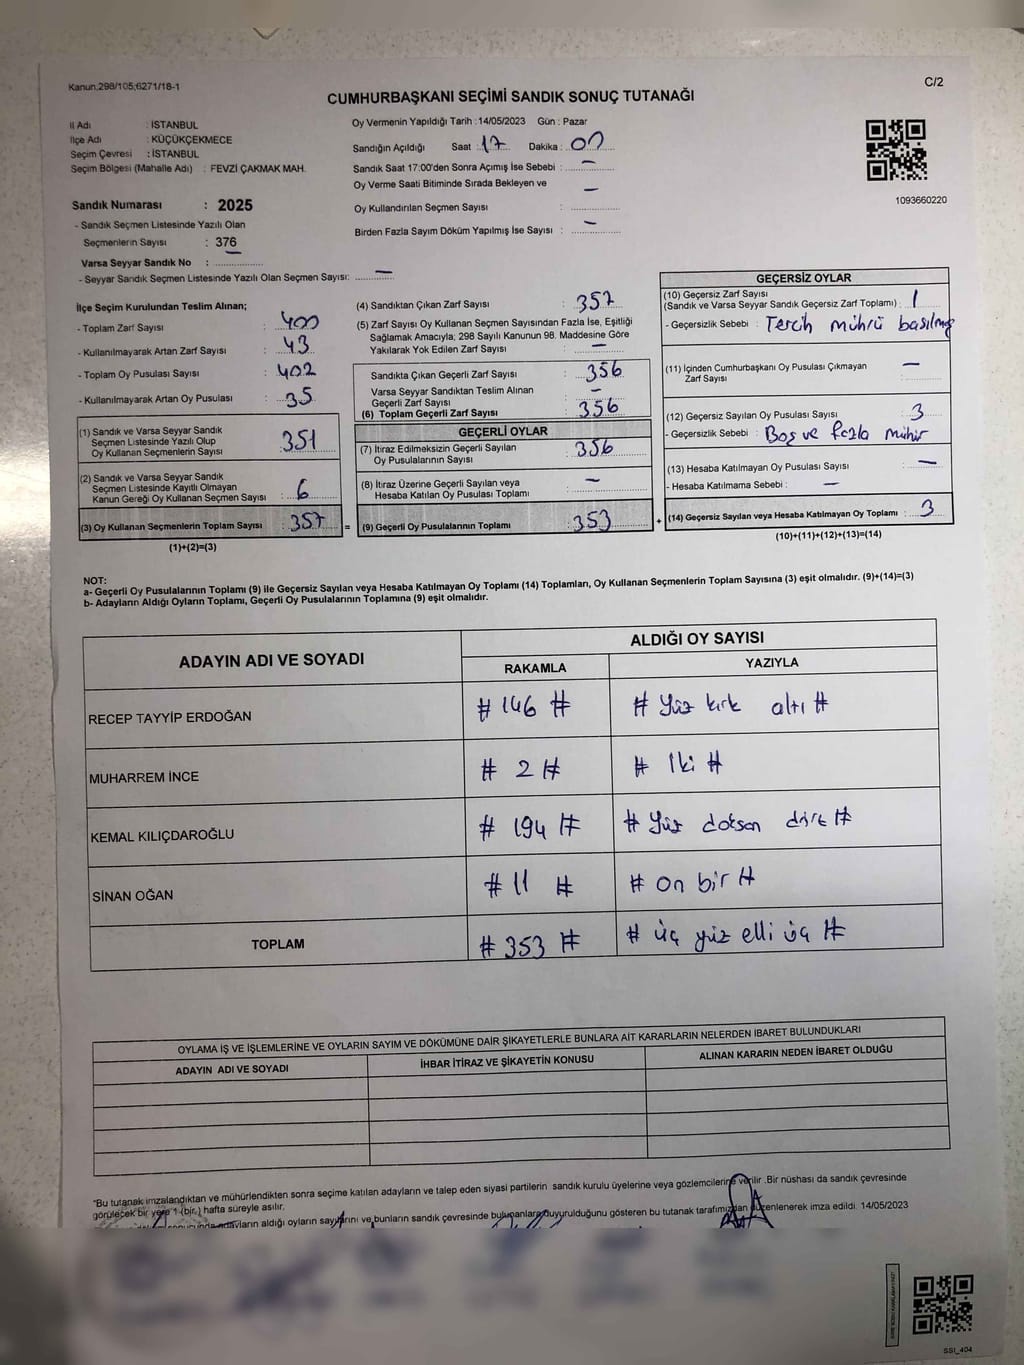 Kanun,298/105;6271/18-1
C/2
CUMHURBAŞKANI SEÇİMİ SANDIK SONUÇ TUTANAĞI
İl Adı : İSTANBUL
İlçe Adı : KÜÇÜKÇEKMECE
Seçim Çevresi : İSTANBUL
Seçim Bölgesi (Mahalle Adı) : FEVZİ ÇAKMAK MAH.
Sandık Numarası : 2025
- Sandık Seçmen Listesinde Yazılı Olan
Seçmenlerin Sayısı : 376
Varsa Seyyar Sandık No : —
- Seyyar Sandık Seçmen Listesinde Yazılı Olan Seçmen Sayısı: —
Oy Vermenin Yapıldığı Tarih :14/05/2023 Gün : Pazar
Sandığın Açıldığı Saat : 17 Dakika : 00
Sandık Saat 17:00'den Sonra Açımış İse Sebebi : —
Oy Verme Saati Bitiminde Sırada Bekleyen ve
Oy Kullandırılan Seçmen Sayısı : —
Birden Fazla Sayım Döküm Yapılmış İse Sayısı : —
1093660220
İlçe Seçim Kurulundan Teslim Alınan;
- Toplam Zarf Sayısı : 400
- Kullanılmayarak Artan Zarf Sayısı : 43
- Toplam Oy Pusulası Sayısı : 402
- Kullanılmayarak Artan Oy Pusulası : 35
(1) Sandık ve Varsa Seyyar Sandık
Seçmen Listesinde Yazılı Olup
Oy Kullanan Seçmenlerin Sayısı : 351
(2) Sandık ve Varsa Seyyar Sandık
Seçmen Listesinde Kayıtlı Olmayan
Kanun Gereği Oy Kullanan Seçmen Sayısı : 6
(3) Oy Kullanan Seçmenlerin Toplam Sayısı : 357 =
(1)+(2)=(3)
(4) Sandıktan Çıkan Zarf Sayısı : 357
(5) Zarf Sayısı Oy Kullanan Seçmen Sayısından Fazla İse, Eşitliği
Sağlamak Amacıyla; 298 Sayılı Kanunun 98. Maddesine Göre
Yakılarak Yok Edilen Zarf Sayısı : —
Sandıkta Çıkan Geçerli Zarf Sayısı : 356
Varsa Seyyar Sandıktan Teslim Alınan
Geçerli Zarf Sayısı : —
(6) Toplam Geçerli Zarf Sayısı : 356
GEÇERLİ OYLAR
(7) İtiraz Edilmeksizin Geçerli Sayılan
Oy Pusulalarının Sayısı : 356
(8) İtiraz Üzerine Geçerli Sayılan veya
Hesaba Katılan Oy Pusulası Toplamı : —
(9) Geçerli Oy Pusulalarının Toplamı : 353 +
GEÇERSİZ OYLAR
(10) Geçersiz Zarf Sayısı
(Sandık ve Varsa Seyyar Sandık Geçersiz Zarf Toplamı) : 1
- Geçersizlik Sebebi : Tercih mührü basılmış
(11) İçinden Cumhurbaşkanı Oy Pusulası Çıkmayan
Zarf Sayısı : —
(12) Geçersiz Sayılan Oy Pusulası Sayısı : 3
- Geçersizlik Sebebi : Boş ve fazla mühür
(13) Hesaba Katılmayan Oy Pusulası Sayısı : —
- Hesaba Katılmama Sebebi : —
(14) Geçersiz Sayılan veya Hesaba Katılmayan Oy Toplamı : 3
(10)+(11)+(12)+(13)=(14)
NOT:
a- Geçerli Oy Pusulalarının Toplamı (9) ile Geçersiz Sayılan veya Hesaba Katılmayan Oy Toplamı (14) Toplamları, Oy Kullanan Seçmenlerin Toplam Sayısına (3) eşit olmalıdır. (9)+(14)=(3)
b- Adayların Aldığı Oyların Toplamı, Geçerli Oy Pusulalarının Toplamına (9) eşit olmalıdır.
ADAYIN ADI VE SOYADI
ALDIĞI OY SAYISI
RAKAMLA YAZIYLA
RECEP TAYYİP ERDOĞAN # 146 # # Yüz kırk altı #
MUHARREM İNCE # 2 # # İki #
KEMAL KILIÇDAROĞLU # 194 # # Yüz doksan dört #
SİNAN OĞAN # 11 # # on bir #
TOPLAM # 353 # # üç yüz elli üç #
OYLAMA İŞ VE İŞLEMLERİNE VE OYLARIN SAYIM VE DÖKÜMÜNE DAİR ŞİKAYETLERLE BUNLARA AİT KARARLARIN NELERDEN İBARET BULUNDUKLARI
ADAYIN ADI VE SOYADI İHBAR İTİRAZ VE ŞİKAYETİN KONUSU ALINAN KARARIN NEDEN İBARET OLDUĞU
"Bu tutanak imzalandıktan ve mühürlendikten sonra seçime katılan adayların ve talep eden siyasi partilerin sandık kurulu üyelerine veya gözlemcilerine verilir .Bir nüshası da sandık çevresinde
görülecek bir yere 1 (bir ) hafta süreyle asılır.
adayların aldığı oyların sayılarını ve bunların sandık çevresinde bulunanlara duyurulduğunu gösteren bu tutanak tarafımızdan düzenlenerek imza edildi. 14/05/2023
SSI_404